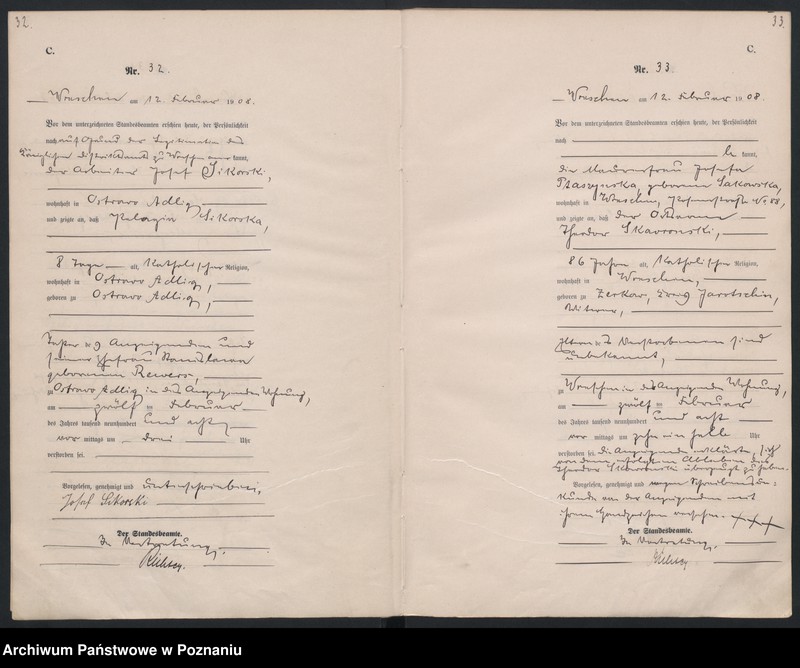 32.
C.
Nr. 32.
Wreschen am 12. Februar 1908.
Vor dem unterzeichneten Standesbeamten erschien heute, der Persönlichkeit
nach auf Grund der Legitimation des
Königlichen Distriktsamts zu Wreschen kannt,
der Arbeiter Josef Sikorski,
wohnhaft in Ostrowo Adlig
und zeigte an, daß Pelagia Sikorska,
8 Tage alt, Katholischer Religion,
wohnhaft in Ostrowo Adlig,
geboren zu Ostrowo Adlig,
Tochter des Anzeigenden und
seiner Ehefrau Stanislawa
geborenen Rewers,
zu Ostrowo Adlig in des Anzeigenden Wohnung,
am zwölften Februar
des Jahres tausend neunhundert und acht,
vor mittags um drei Uhr
verstorben sei.
Vorgelesen, genehmigt und unterschrieben,
Josef Sikorski
Der Standesbeamte.
In Vertretung,
33.
C.
Nr. 33.
Wreschen am 12. Februar 1908.
Vor dem unterzeichneten Standesbeamten erschien heute, der Persönlichkeit
nach
be kannt,
die Maurerfrau Josefa
Ptaszynska, geborene Sakowska,
wohnhaft in Wreschen, Posenerstraße No 88,
und zeigte an, daß der
Theodor Skavronski,
86 Jahre alt, Katholischer Religion,
wohnhaft in Wreschen,
geboren zu Zerkow, Kreis Jarotschin,
Witwer,
Eltern des Verstorbenen sind
unbekannt,
zu Wreschen in der Anzeigenden Wohnung,
am zwölften Februar
des Jahres tausend neunhundert und acht
vor mittags um zehn ein halb Uhr
verstorben sei. Die Anzeigende erklärte, sich
von dem erfolgten Ableben des
Theodor Skavronski überzeugt zu haben.
Vorgelesen, genehmigt und wegen Schreibensun-
kunde von der Anzeigenden mit
ihrem Handzeichen versehen. +++
Der Standesbeamte.
In Vertretung,
Archiwum Państwowe w Poznaniu